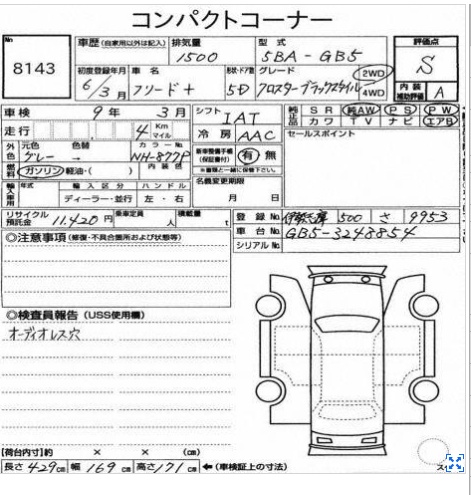 コンパクトコーナー
No. 8143
車歴 (自家用以外は記入) 排気量 1500 型式 5BA-GB5
初度登録年月 6/3月 車名 フリード+ 形状・ドア数 5D グレード クロスターブラックスタイル 2WD 4WD
評価点 S
内装 補助評価 A
車検 9年 3月 シフト IAT
走行 4 Km マイル 冷房 AAC
純正品 SR 純AW PS PW
カワ TV ナビ エアB
外色 元色 グレー → 色替 カラーNo. NH-877P
内装色
燃料 ガソリン 軽油・( )
新車整備手帳 (保証書付) 有 無
※書類と一緒に保管下さい。
セールスポイント
輸入車用 年式 輸入区分 ハンドル
ディーラー・並行 左・右
名義変更期限
月 日
リサイクル預託金 11.420円 乗車定員 人 積載量 t
登録No. 500 さ 9953
車台No. GB5-3248854
シリアルNo.
◎注意事項 (修復・不具合箇所および状態等)
◎検査員報告 (USS使用欄)
オーディオレス穴
【荷台内寸】約 × × (cm)
長さ 429cm 幅 169cm 高さ 171cm ←(車検証上の寸法)